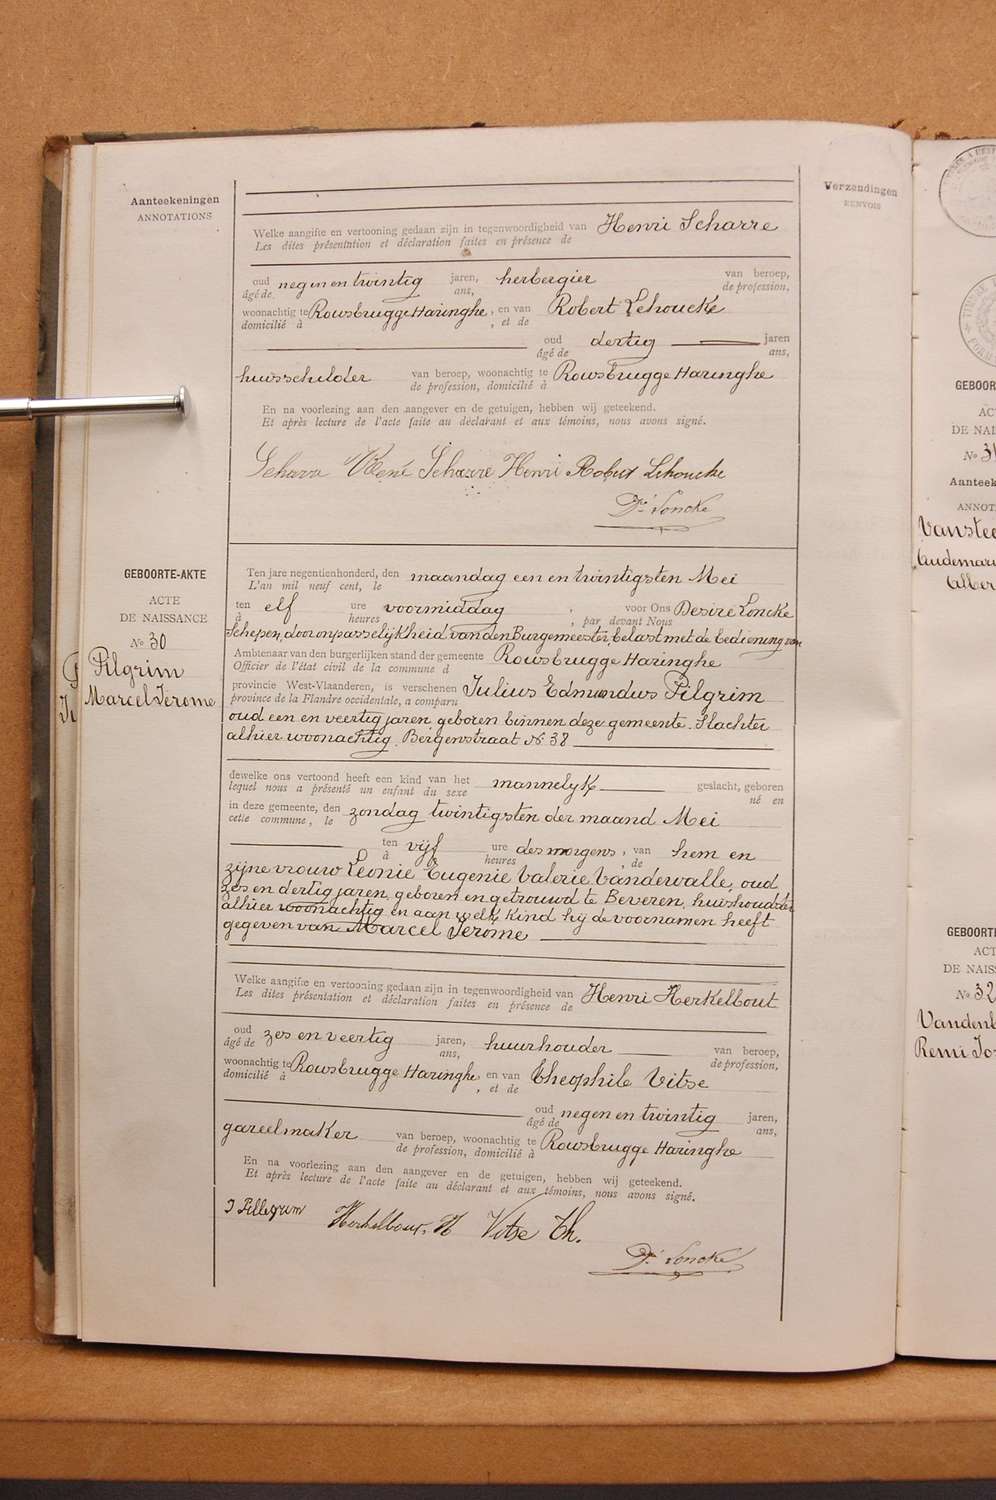 Aanteekeningen
ANNOTATIONS
Verzendingen
RENVOIS
Welke aangifte en vertooning gedaan zijn in tegenwoordigheid van Henri Scharre
Les dites présentation et déclaration faites en présence de
oud negen en twintig jaren, herbergier van beroep,
âgé de ans, de profession,
woonachtig te Rousbrugge Haringhe, en van Robert Lehoucke
domicilié à , et de
oud dertig jaren
âgé de ans,
huisschilder van beroep, woonachtig te Rousbrugge Haringhe
de profession, domicilié à
En na voorlezing aan den aangever en de getuigen, hebben wij geteekend.
Et après lecture de l'acte faite au déclarant et aux témoins, nous avons signé.
René Scharre Henri Robert Lehoucke
Dr. Loncke
GEBOORTE-AKTE
ACTE
DE NAISSANCE
No 30
Pilgrim
Marcel Jerome
Ten jare negentienhonderd, den maandag een en twintigsten Mei
L'an mil neuf cent, le
ten elf ure voormiddag , voor Ons Desire Loncke
à heures , par devant Nous
Schepen, door onpasselijkheid van den Burgemeester, belast met de bediening van
Ambtenaar van den burgerlijken stand der gemeente Rousbrugge Haringhe
Officier de l'état civil de la commune d
provincie West-Vlaanderen, is verschenen Julius Edmundus Pilgrim
province de la Flandre occidentale, a comparu
oud een en veertig jaren geboren binnen deze gemeente. Slachter
alhier woonachtig. Bergenstraat No 38
dewelke ons vertoond heeft een kind van het mannelyk geslacht, geboren
lequel nous a présenté un enfant du sexe né en
in deze gemeente, den zondag twintigsten der maand Mei
cette commune, le
ten vijf ure des morgens, van hem en
à heures , de
zijne vrouw Leonie Eugenie Valerie Vandewalle, oud
zes en dertig jaren, geboren en getrouwd te Beveren, huishoudster
alhier woonachtig en aan welk kind hij de voornamen heeft
gegeven van Marcel Jerome
Welke aangifte en vertooning gedaan zijn in tegenwoordigheid van Henri Herkelbout
Les dites présentation et déclaration faites en présence de
oud zes en veertig jaren, huurhouder van beroep,
âgé de ans, de profession,
woonachtig te Rousbrugge Haringhe, en van Theophile Vitse
domicilié à , et de
oud negen en twintig jaren,
âgé de ans,
gareelmaker van beroep, woonachtig te Rousbrugge Haringhe
de profession, domicilié à
En na voorlezing aan den aangever en de getuigen, hebben wij geteekend.
Et après lecture de l'acte faite au déclarant et aux témoins, nous avons signé.
J Pillegrim Herkelbout, H Vitse Th.
Dr. Loncke
GEBOOR
AC
DE NAI
No 31
Aanteek
ANNOT
Vanstee
Audemari
Alber
GEBOORT
ACT
DE NAIS
No 32
Vandenb
Remi Jos